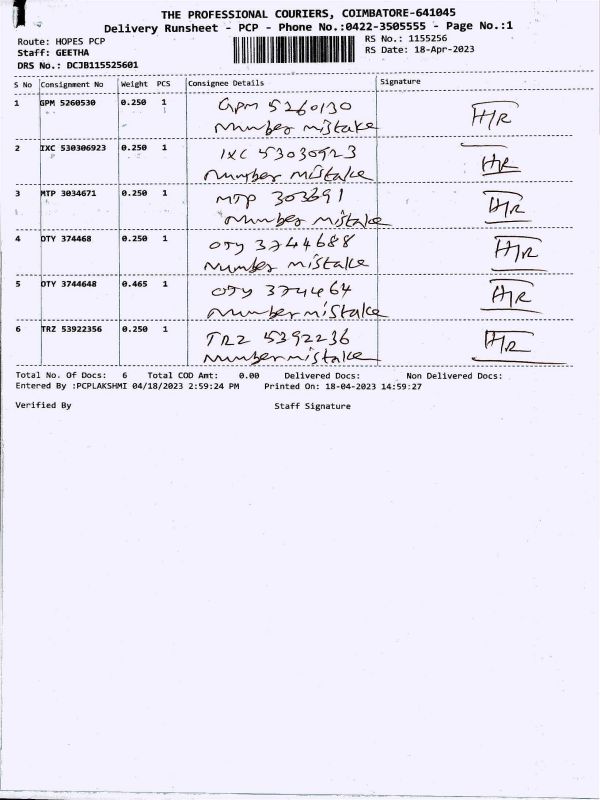 THE PROFESSIONAL COURIERS, COIMBATORE-641045
Delivery Runsheet - PCP - Phone No.:0422-3505555 - Page No.:1
Route: HOPES PCP
RS No.: 1155256
Staff: GEETHA
RS Date: 18-Apr-2023
DRS No.: DCJB115525601
S No Consignment No Weight PCS Consignee Details Signature
1 GPM 5260530 0.250 1 GPM 5260130 H/R
Number mistake
2 IXC 530306923 0.250 1 IXC 53030923 HR
Number mistake
3 MTP 3034671 0.250 1 MTP 303691 H/R
Number mistake
4 OTY 374468 0.250 1 OTY 3744688 H/R
Number mistake
5 OTY 3744648 0.465 1 OTY 374464 H/R
Number mistake
6 TRZ 53922356 0.250 1 TRZ 5392236 H/R
Number mistake
Total No. Of Docs: 6 Total COD Amt: 0.00 Delivered Docs: Non Delivered Docs:
Entered By :PCPLAKSHMI 04/18/2023 2:59:24 PM Printed On: 18-04-2023 14:59:27
Verified By Staff Signature